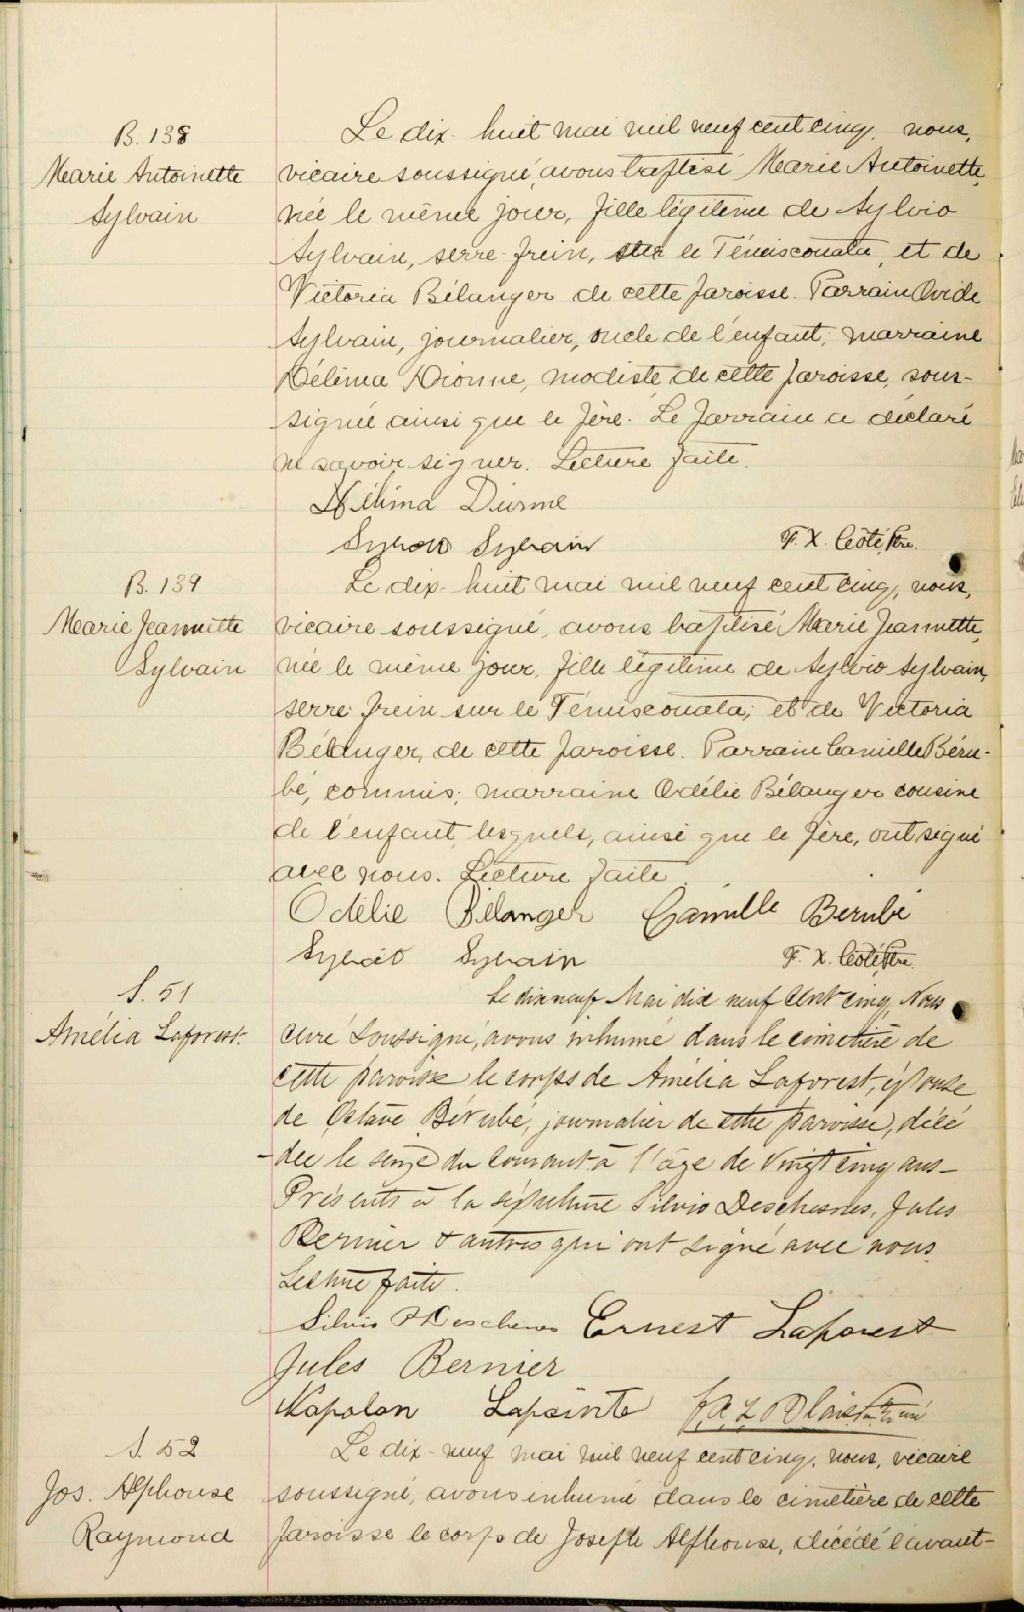 B. 138
Marie Antoinette
Sylvain
Le dix-huit mai mil neuf cent cinq, nous,
vicaire soussigné, avons baptisé Marie Antoinette,
née le même jour, fille légitime de Sylvio
Sylvain, serre-frein, sur le Témiscouata, et de
Victoria Bélanger de cette paroisse. Parrain Ovide
Sylvain, journalier, oncle de l'enfant; marraine
Délima Dionne, modiste de cette paroisse, sous-
signée ainsi que le père. Le parrain a déclaré
ne savoir signer. Lecture faite.
Délima Dionne
Sylvio Sylvain F. X. Côté, Ptre.
B. 139
Marie Jeannette
Sylvain
Le dix-huit mai mil neuf cent cinq, nous,
vicaire soussigné, avons baptisé Marie Jeannette,
née le même jour, fille légitime de Sylvio Sylvain,
serre-frein sur le Témiscouata, et de Victoria
Bélanger, de cette paroisse. Parrain Camille Béru-
bé, commis; marraine Odélie Bélanger cousine
de l'enfant, lesquels, ainsi que le père, ont signé
avec nous. Lecture faite.
Odélie Bélanger Camille Bérubé
Sylvio Sylvain F. X. Côté, Ptre.
S. 51
Amélia Laforest.
Le dix neuf Mai dix neuf cent cinq, Nous
curé soussigné, avons inhumé dans le cimetière de
cette paroisse le corps de Amélia Laforest, épouse
de Octave Bérubé, journalier de cette paroisse, décé
-dée le seize du courant à l'âge de vingt cinq ans-
Présents à la sépulture Silvio Deschesnes, Jules
Bernier & autres qui ont signé avec nous.
Lecture faite.
Silvio Deschenes Ernest Laforest
Jules Bernier
Napolon Lapointe Blais Ptre Curé
S. 52
Jos. Alphonse
Raymond
Le dix-neuf mai mil neuf cent cinq, nous, vicaire
soussigné, avons inhumé dans le cimetière de cette
paroisse le corps de Joseph Alphonse, décédé l'avant-